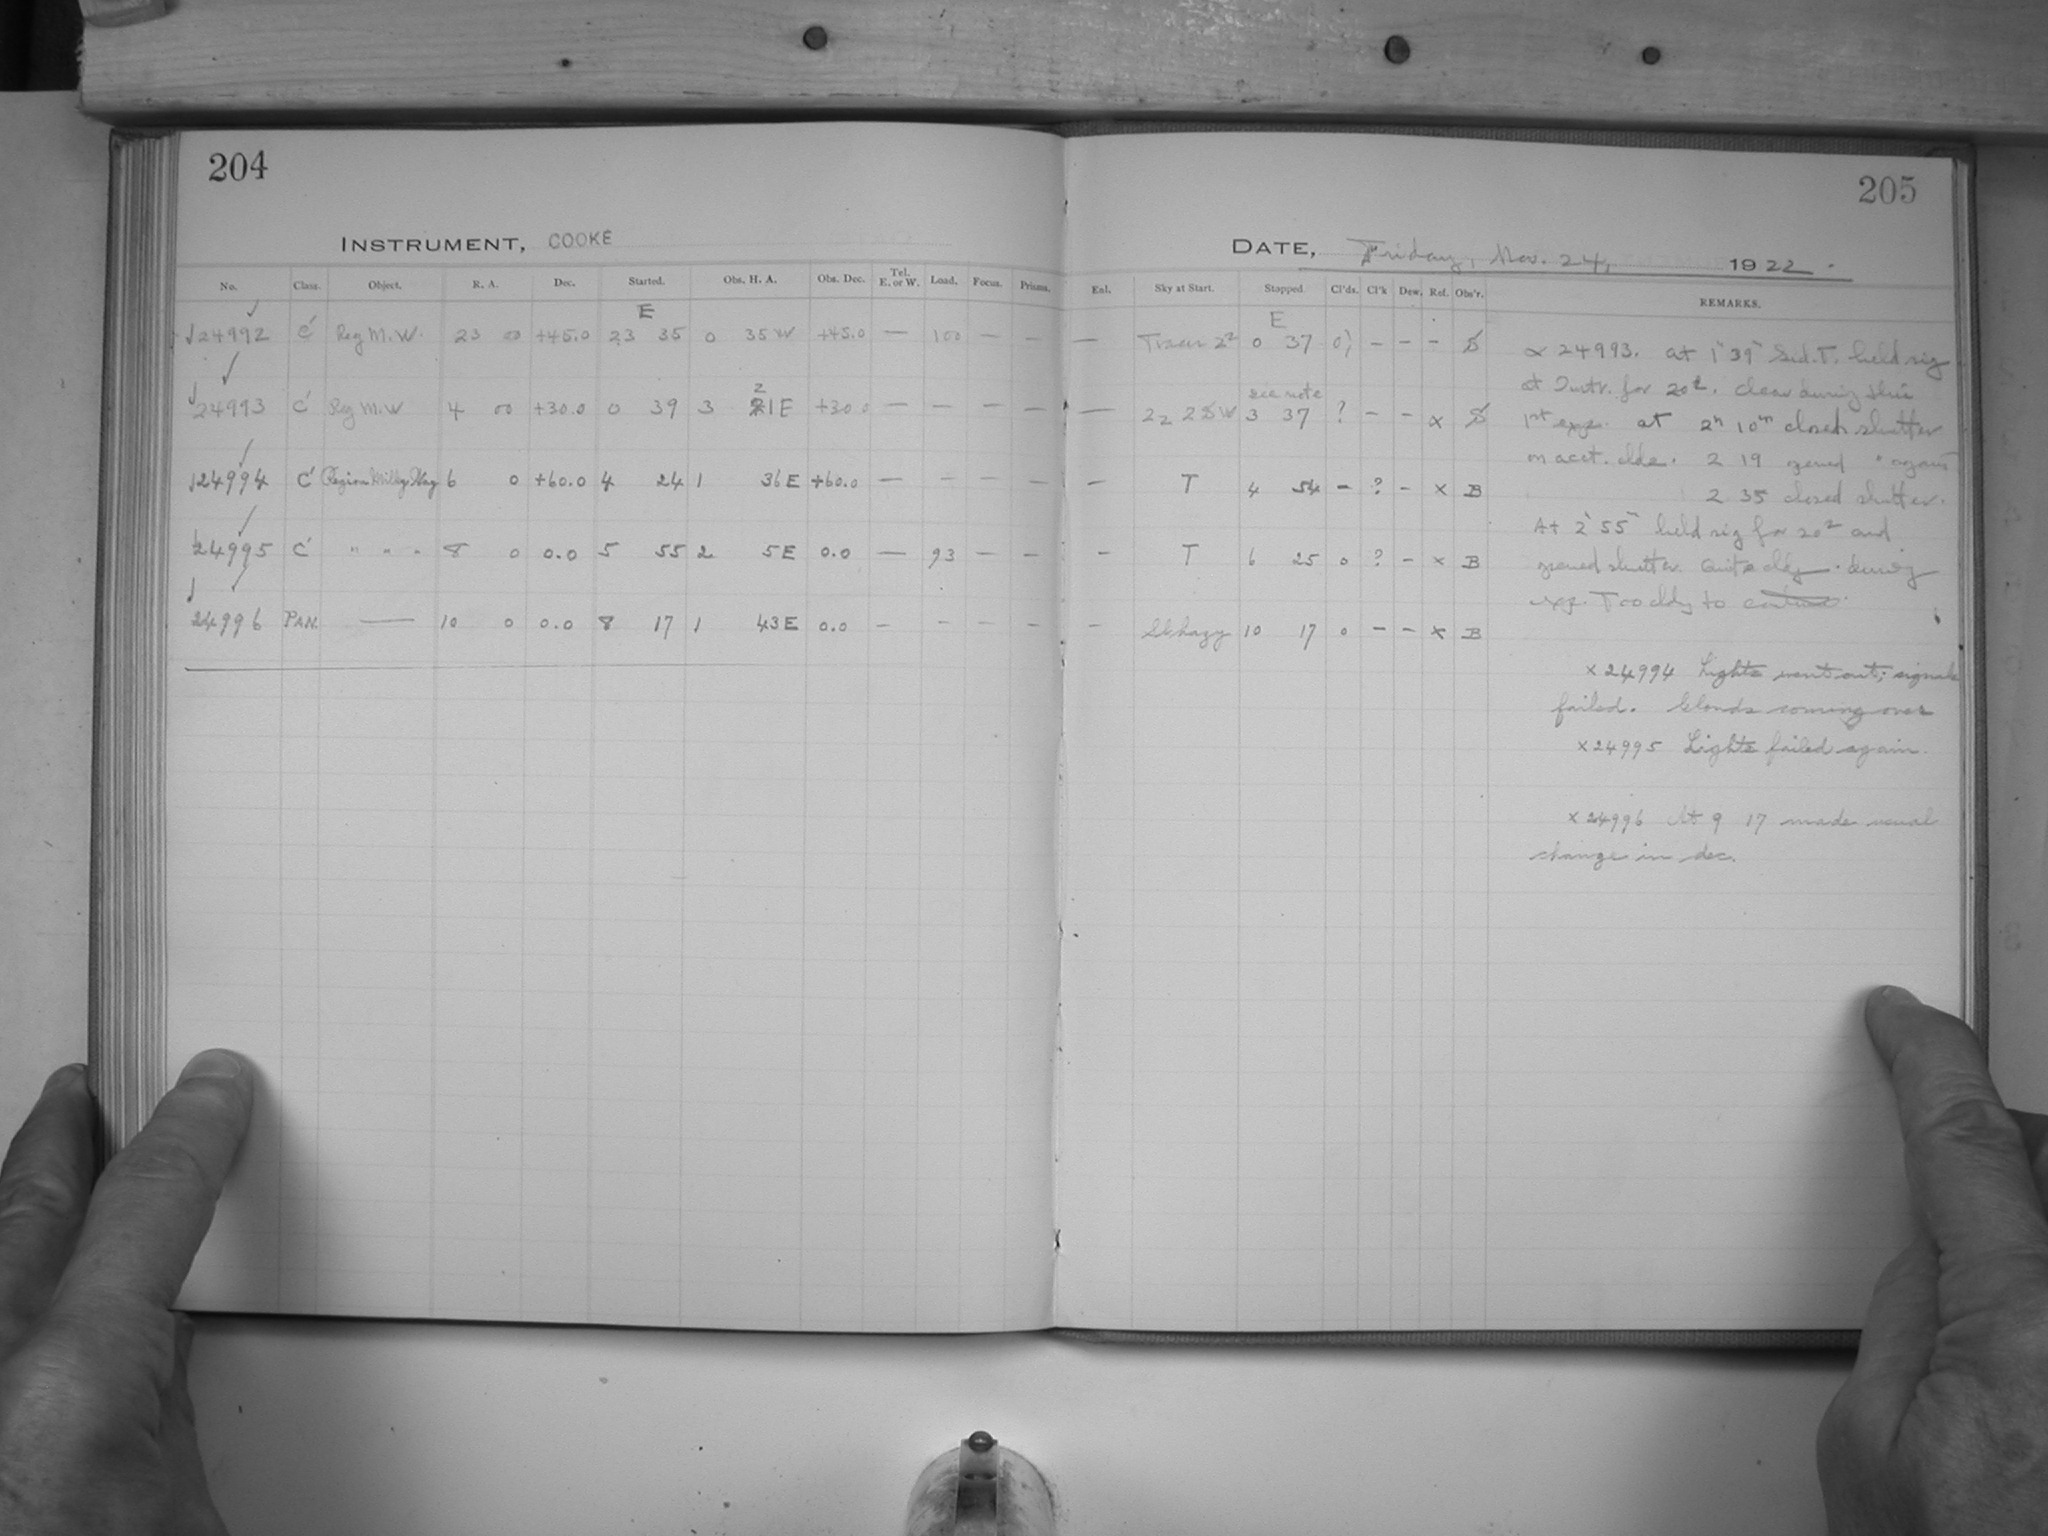 204
INSTRUMENT, COOKE
No. Class. Object. R. A. Dec. Started. Obs. H. A. Obs. Dec. Tel. E. or W. Load. Focus. Prisms.
E
24992 C' Reg M.W. 23 00 +45.0 23 35 0 35 W +45.0 — 100 — —
24993 C' Reg M.W 4 00 +30.0 0 39 3 21 E +30.0 — — — —
24994 C' Region Milky Way 6 0 +60.0 4 24 1 36 E +60.0 — — — —
24995 C' " " " 8 0 0.0 5 55 2 5 E 0.0 — 93 — —
24996 PAN. — 10 0 0.0 8 17 1 43 E 0.0 — — — —
205
DATE, Friday, Nov. 24, 1922.
Enl. Sky at Start. Stopped Cl'ds. Cl'k Dew. Ref. Obs'r. REMARKS.
E
— 0 37 — — — S
see note
— 3 37 ? — — x S
— T 4 54 — ? — x B
— T 6 25 0 ? — x B
— Sl hazy 10 17 0 — — x B
x 24993. at 1h 39m Sid. T. held sig
at Instr. for 20s. clear during this
1st exp. at 2h 10m closed shutter
on acct. clds. 2 19 opened " again
2 35 closed shutter.
At 2h 55m held sig for 20s and
opened shutter. Quite cldy. during
exp. Too cldy to continue.
x 24994 Lights went out; signals
failed. Clouds coming over
x 24995 Lights failed again.
x 24996 At 9 17 made usual
change in dec.